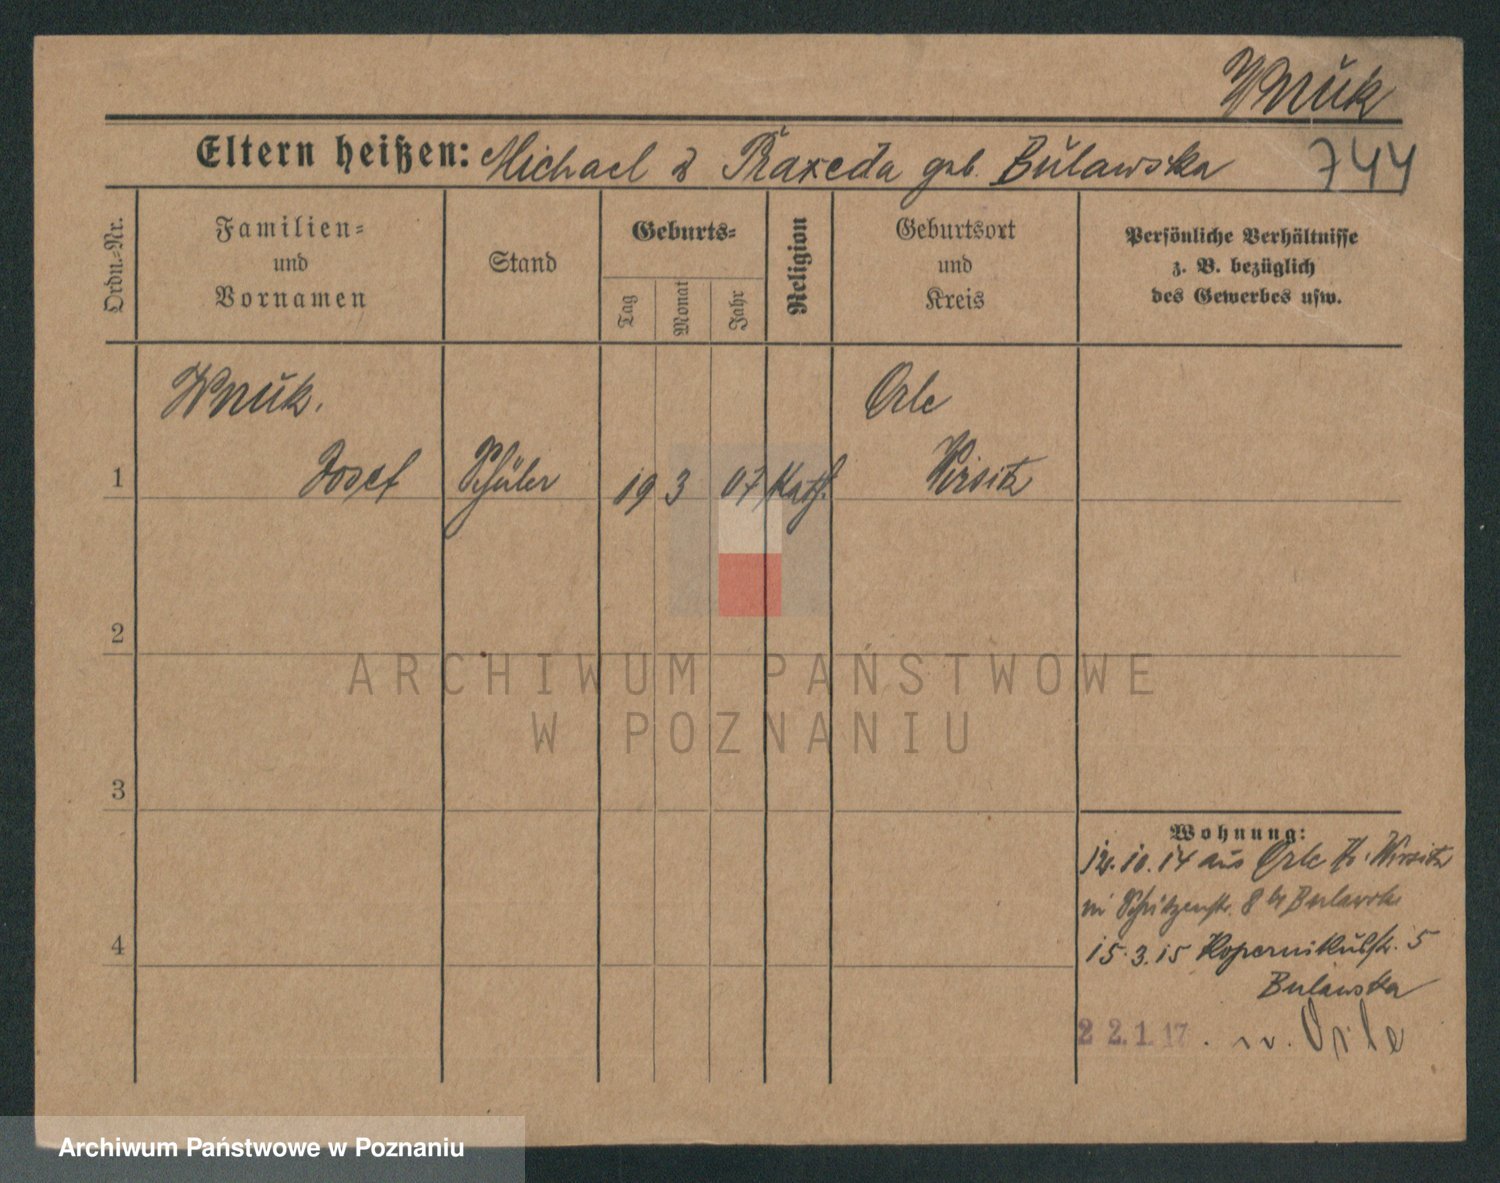 Wnuk
Eltern heißen: Michael & Praxeda geb. Bulawska 744
Ordn.-Nr.
Familien-
und
Vornamen
Stand
Geburts-
Tag
Monat
Jahr
Religion
Geburtsort
und
Kreis
Persönliche Verhältnisse
z. B. bezüglich
des Gewerbes usw.
Wnuk. Orle
1 Josef Schüler 19 3 07 Kath. Wirsitz
2
3
4
Wohnung:
12.10.14 aus Orle Kr. Wirsitz
Schützenstr. 8 b/ Bulawska
15.3.15 Kopernikusstr. 5
Bulawska
22.1.17. n. Orle
ARCHIWUM PAŃSTWOWE
W POZNANIU
Archiwum Państwowe w Poznaniu